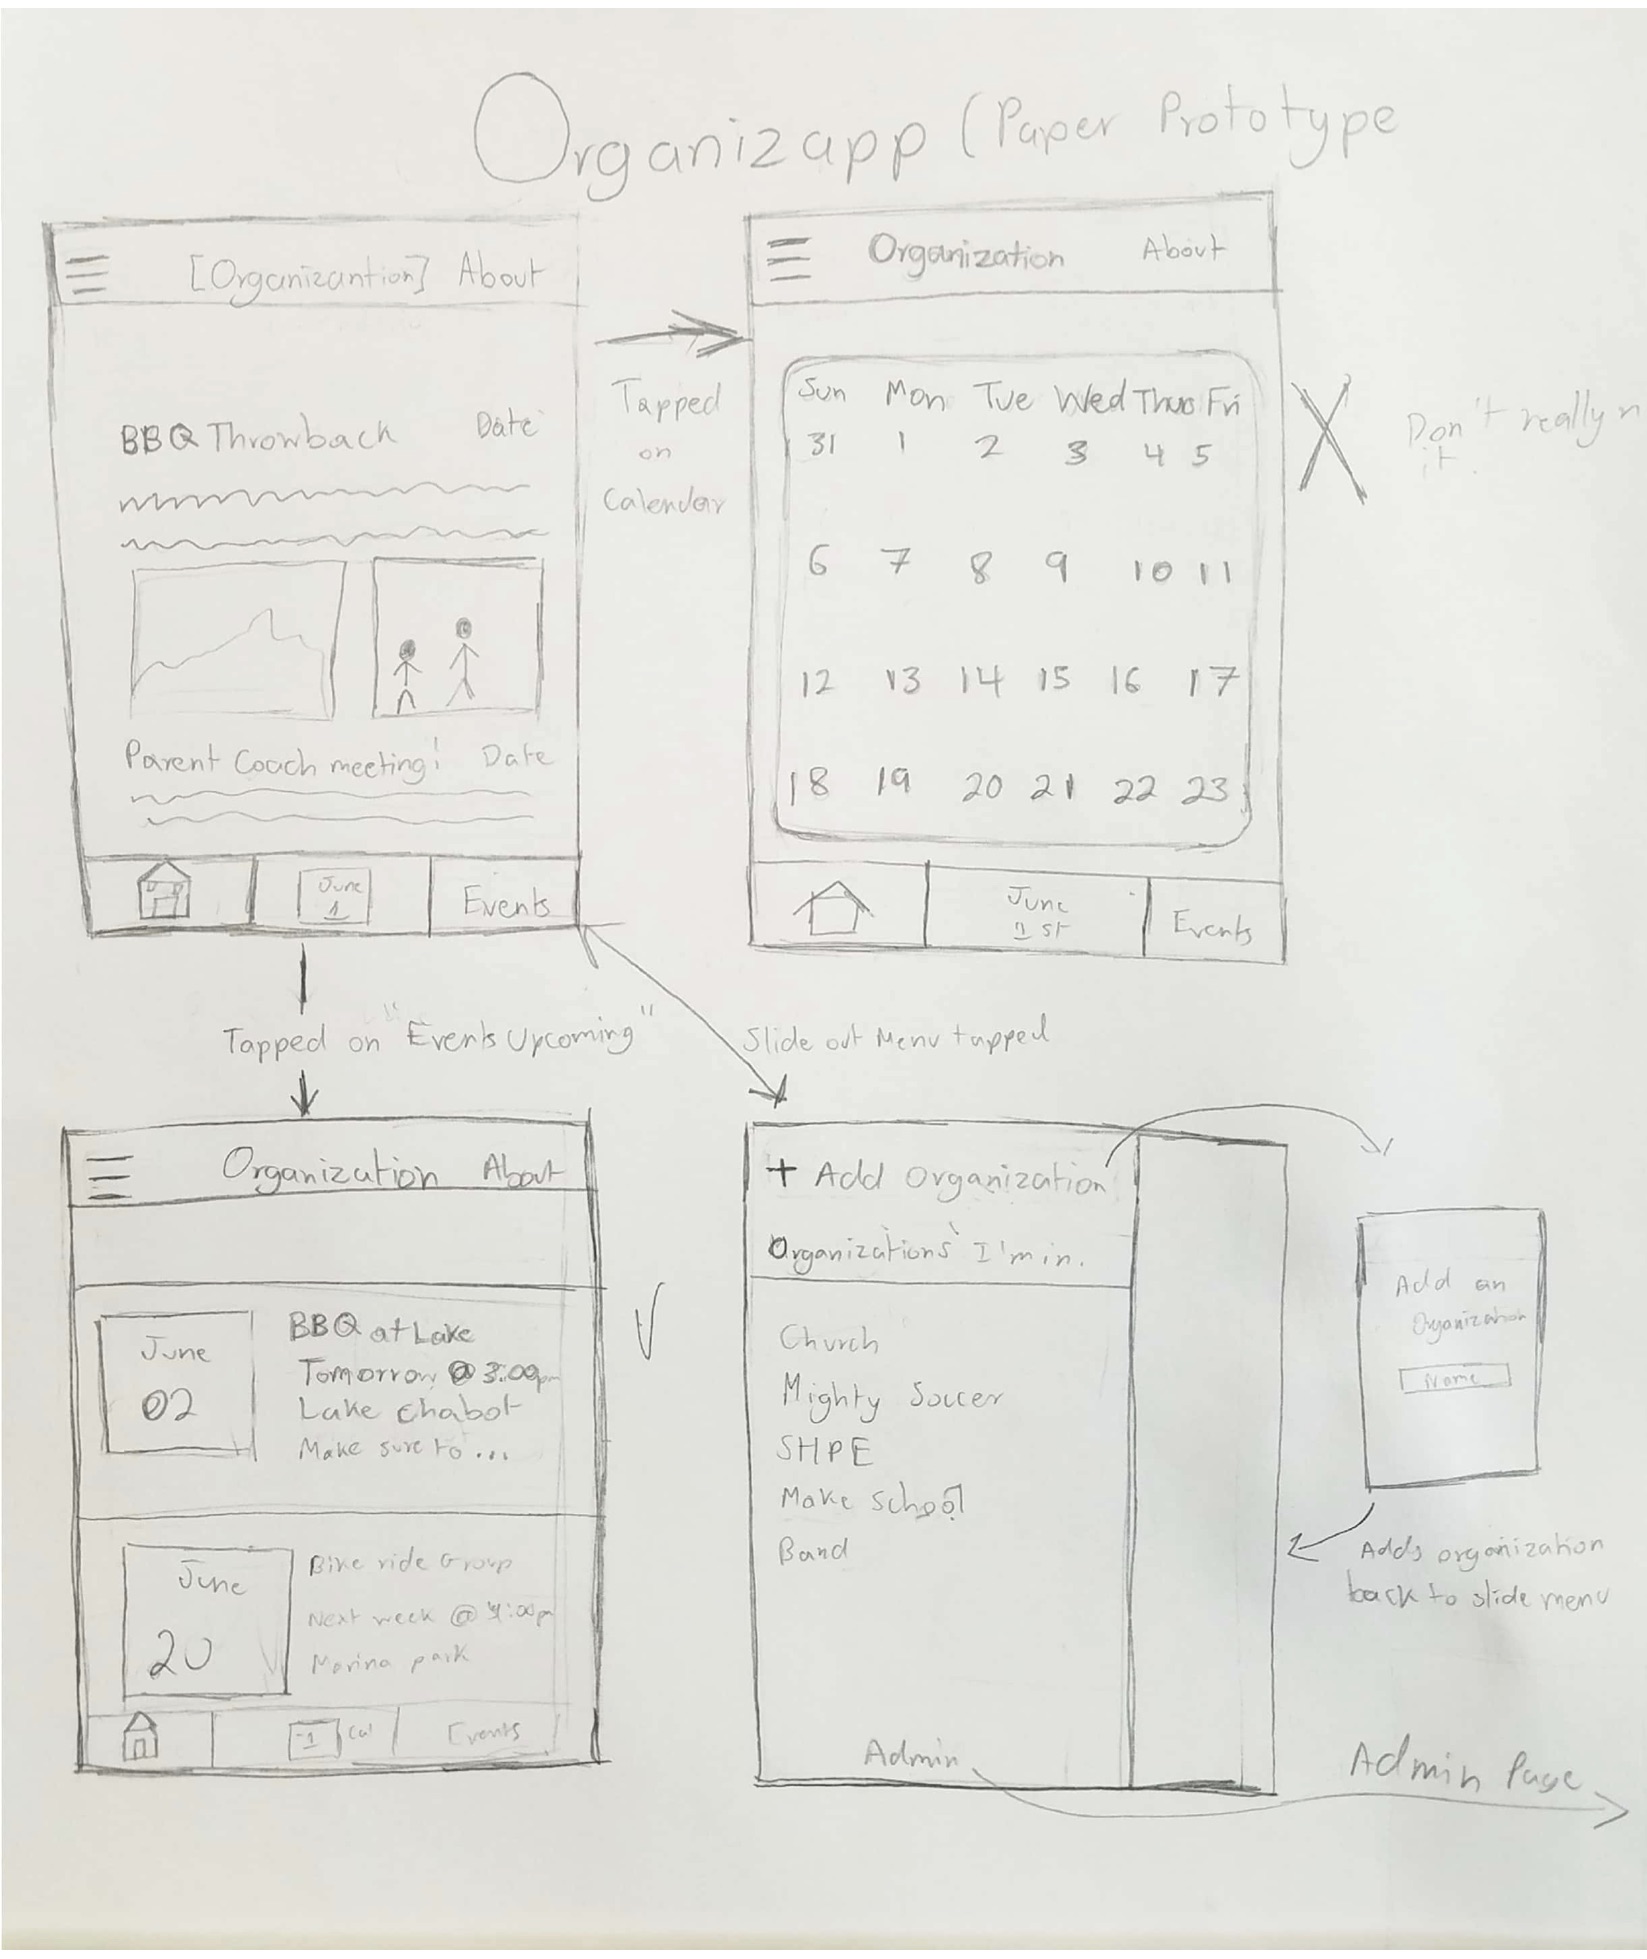 Organizapp (Paper Prototype
[Organizantion] About
BBQ Throwback Date
Parent Coach meeting! Date
June
1
Events
Tapped
on
Calendar
Organization About
Sun Mon Tue Wed Thur Fri
31 1 2 3 4 5
6 7 8 9 10 11
12 13 14 15 16 17
18 19 20 21 22 23
June
1 st
Events
Don't really
it.
Tapped on "Events Upcoming"
Slide out Menu tapped
Organization About
June
02
BBQ at Lake
Tomorrow @ 3:00pm
Lake Chabot
Make sure to ...
June
20
Bike ride Group
Next week @ 4:00pm
Marina park
1 Cal
Events
+ Add Organization
Organizations I'm in.
Church
Mighty Soccer
SHPE
Make School
Band
Admin
Add an
Organization
Name
Adds organization
back to slide menu
Admin Page